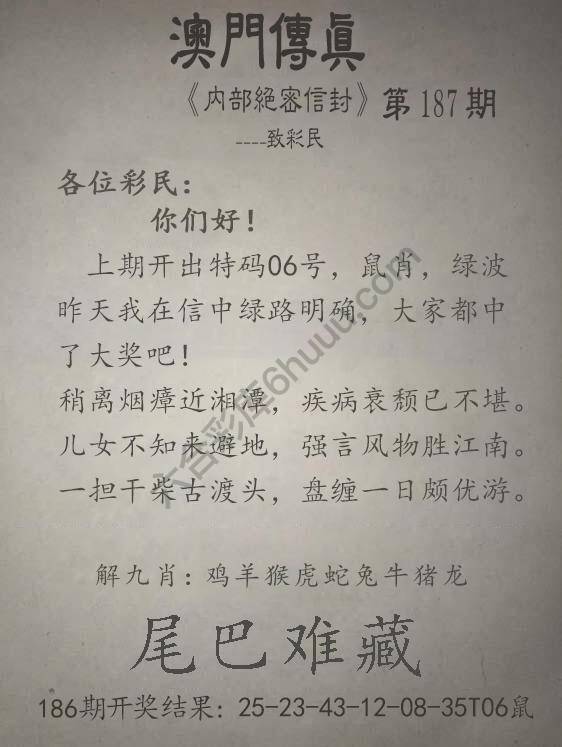 澳門傳真
《内部絕密信封》第187期
----致彩民
各位彩民：
你们好！
上期开出特码06号，鼠肖，绿波
昨天我在信中绿路明确，大家都中
了大奖吧！
稍离烟瘴近湘潭，疾病衰颓已不堪。
儿女不知来避地，强言风物胜江南。
一担干柴古渡头，盘缠一日颇优游。
解九肖：鸡羊猴虎蛇兔牛猪龙
尾巴难藏
186期开奖结果：25-23-43-12-08-35T06鼠
六合彩库6huuu.com